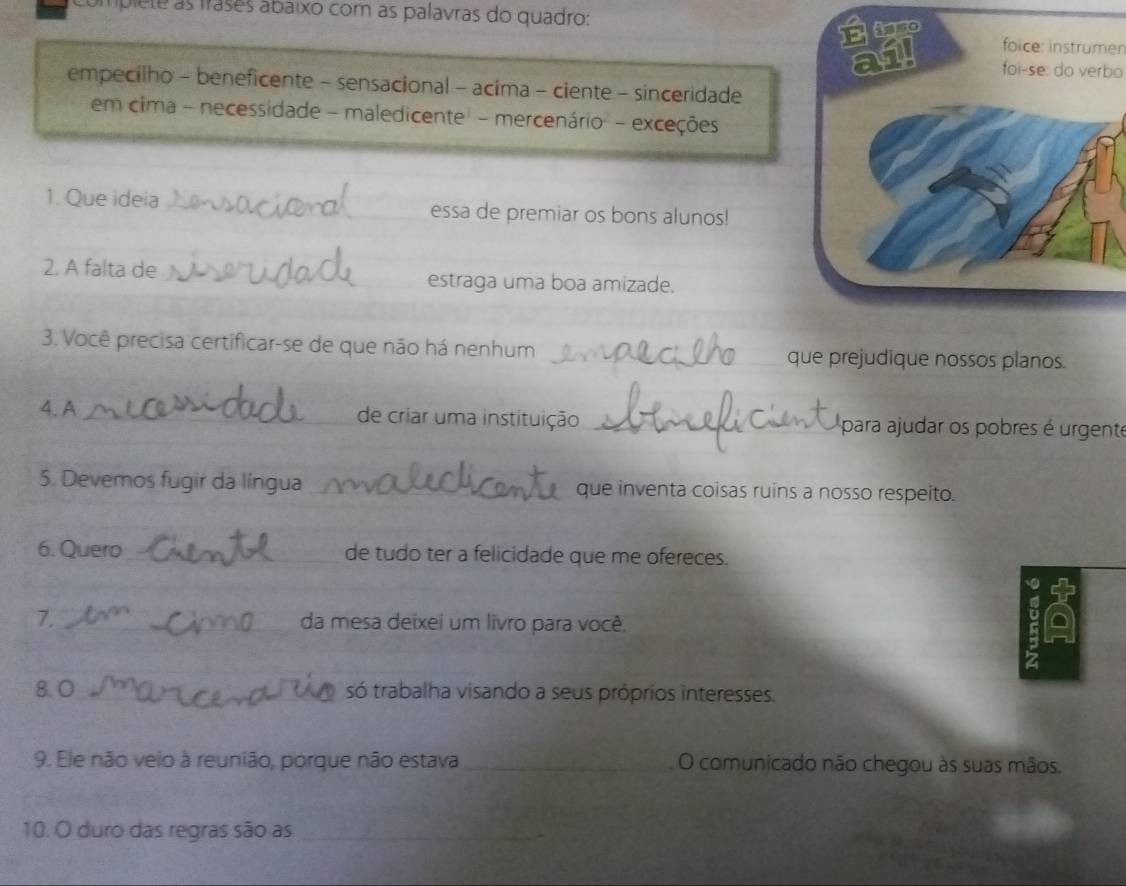 as frases abaixo com as palavras do quadro:
É isso
aí!
foice: instrumen
foi-se: do verbo
empecilho – beneficente – sensacional – acima – ciente – sinceridade
em cima – necessidade – maledicente¹ – mercenário² – exceções
1. Que ideia sensacional essa de premiar os bons alunos!
2. A falta de siseridade estraga uma boa amizade.
3. Você precisa certificar-se de que não há nenhum empecilho que prejudique nossos planos.
4. A necessidade de criar uma instituição para ajudar os pobres é urgente
5. Devemos fugir da língua maledicente que inventa coisas ruins a nosso respeito.
6. Quero ciente de tudo ter a felicidade que me ofereces.
7. em cima da mesa deixei um livro para você.
8. O marcenario só trabalha visando a seus próprios interesses.
9. Ele não veio à reunião, porque não estava . O comunicado não chegou às suas mãos.
10. O duro das regras são as .
Nunca é
D+